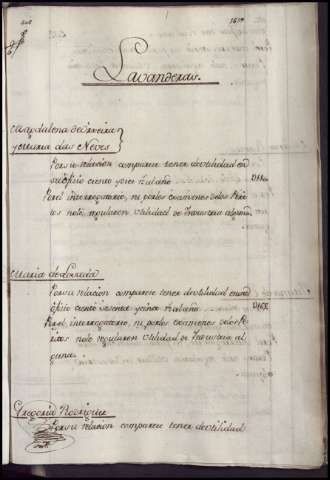 Lavanderas.
Magdalena de
y Maria das Neves
Por su relacion comparece tener de utilidad en
su oficio ciento y diez R.s al año
Por el interrogatorio, ni por los examenes de los Peri
tos no le regularon Utilidad de Industria alguna
Maria de
Por su relacion comparece tener de utilidad en su
oficio ciento sesenta y cinco R.s al año
Por el interrogatorio, ni por los examenes de los Pe
ritos no le regularon Utilidad de Industria al
guna
Gregoria Rodriguez
Por su relacion comparece tener de utilidad